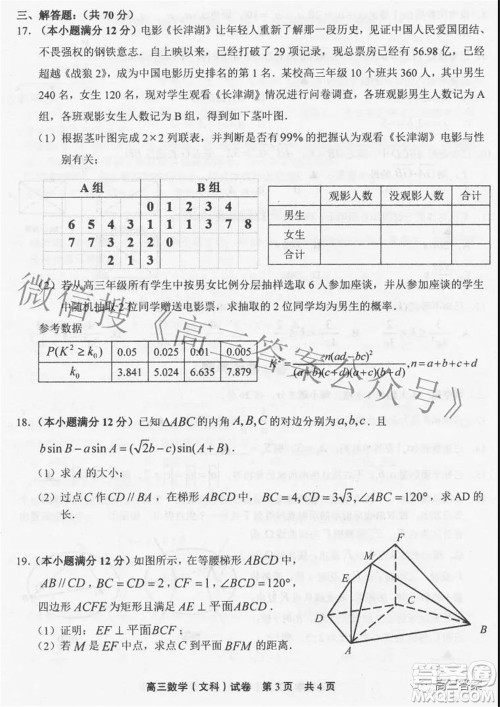 三、解答题：（共70分）
17.（本小题满分12分）电影《长津湖》让年轻人重新了解那一段历史，见证中国人民爱国团结、
不畏强权的钢铁意志．自上映以来，已经打破了 29 项记录，现票房已经了 56.98 亿，已经
超越《战狼 2》，成为中国电影历史排名的第 1 名．某校高三年级 10 个班共 360 人，其中男生
240 名，女生 120 名，现对学生观看《长津湖》情况进行问卷调查，各班观影男生人数记为 A 组，
各班观影女生人数记为 B 组，得到如下茎叶图．
（1）根据茎叶图完成 2×2 列联表，并判断是否有99%的把握认为观看《长津湖》电影与性
别有关；
A 组 B 组
0 1 2 3 4
6 5 4 3 1 1 1 3 7 8
7 7 3 2 2 2 0
观影人数 没观影人数 合计
男生
女生
合计
（2）若从高三年级所有学生中按男女比例分层抽样选取 6 人参加座谈，并从参加座谈的学生
中随机抽取 2 位同学赠送电影票，求抽取的 2 位同学均为男生的概率．
参考数据
P(K²≥k₀) 0.05 0.025 0.01 0.005
k₀ 3.841 5.024 6.635 7.879
K²=n(ad-bc)²/(a+b)(c+d)(a+c)(b+d), n=a+b+c+d
18.（本小题满分12分）已知△ABC的内角A,B,C的对边分别为a,b,c．且
b sin B-a sin A=(√2b-c)sin(A+B).
（1）求A的大小；
（2）过点C作CD//BA，在梯形ABCD中，BC=4,CD=3√3,∠ABC=120°，求AD的
长．
19.（本小题满分12分）如图所示，在等腰梯形ABCD中，
AB//CD, BC=CD=2, ∠BCD=120°,
四边形ACFE为矩形且满足CF⊥平面ABCD.
（1）证明：EF⊥平面BCF；
（2）若M是EF的中点，求点C到平面BFM的距离．
F
M
E
C
B
D
A
高三数学（文科）试卷 第 3 页 共 4 页
微信搜《高三答案公众号》
高三答案